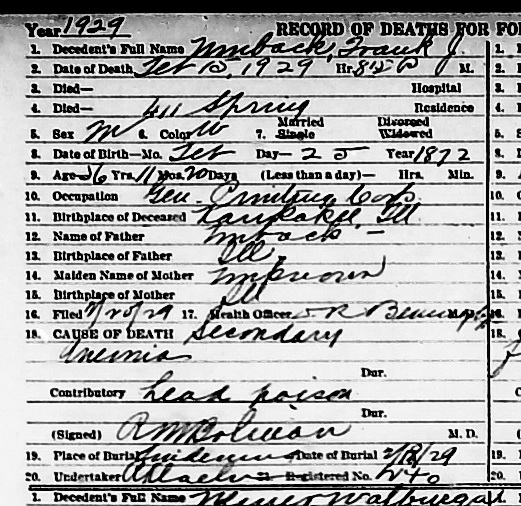 Year 1929 RECORD OF DEATHS FOR FO
1. Decedent's Full Name Umback, Frank J.
2. Date of Death Feb 15, 1929 Hr. 8:15 P M.
3. Died— Hospital
4. Died— 411 Spring Residence
5. Sex M 6. Color W 7. Married Single Divorced Widowed
8. Date of Birth—Mo. Feb Day— 25 Year 1872
9. Age 56 Yrs. 11 Mos. 20 Days (Less than a day)— Hrs. Min.
10. Occupation Gen. Furniture
11. Birthplace of Deceased Kankakee, Ill
12. Name of Father Umback —
13. Birthplace of Father Ill.
14. Maiden Name of Mother Unknown
15. Birthplace of Mother Ill
16. Filed 17. Health Officer
18. CAUSE OF DEATH Secondary
Anemia
Dur.
Contributory Lead poison
Dur.
(Signed) M. D.
19. Place of Burial Date of Burial 2/18/29
20. Undertaker 21. Registered No. 240
1. Decedent's Full Name